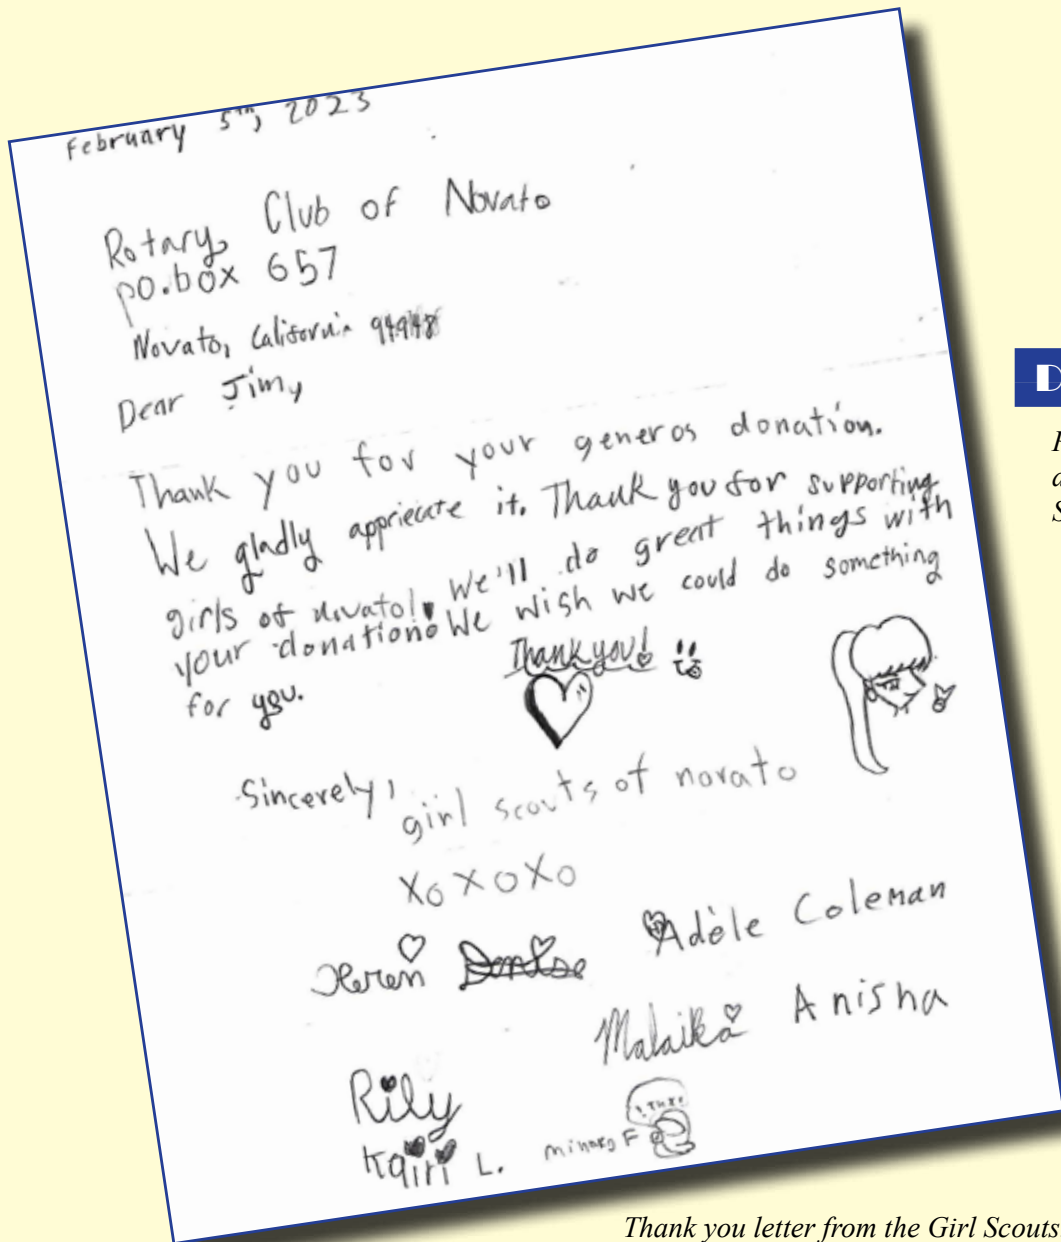 February 5th, 2023
Rotary Club of Novato
po.box 657
Novato, California 94948
Dear Jimy
Thank you for your generos donation.
We gladly appriecate it. Thank you for supporting
girls of novato! We'll do great things with
your donation. We wish we could do something
for you.
Thank you!
Sincerely,
girl scouts of novato
XoXoXo
Adèle Coleman
Malaika Anisha
Rily
Kairi L.
D
Thank you letter from the Girl Scouts